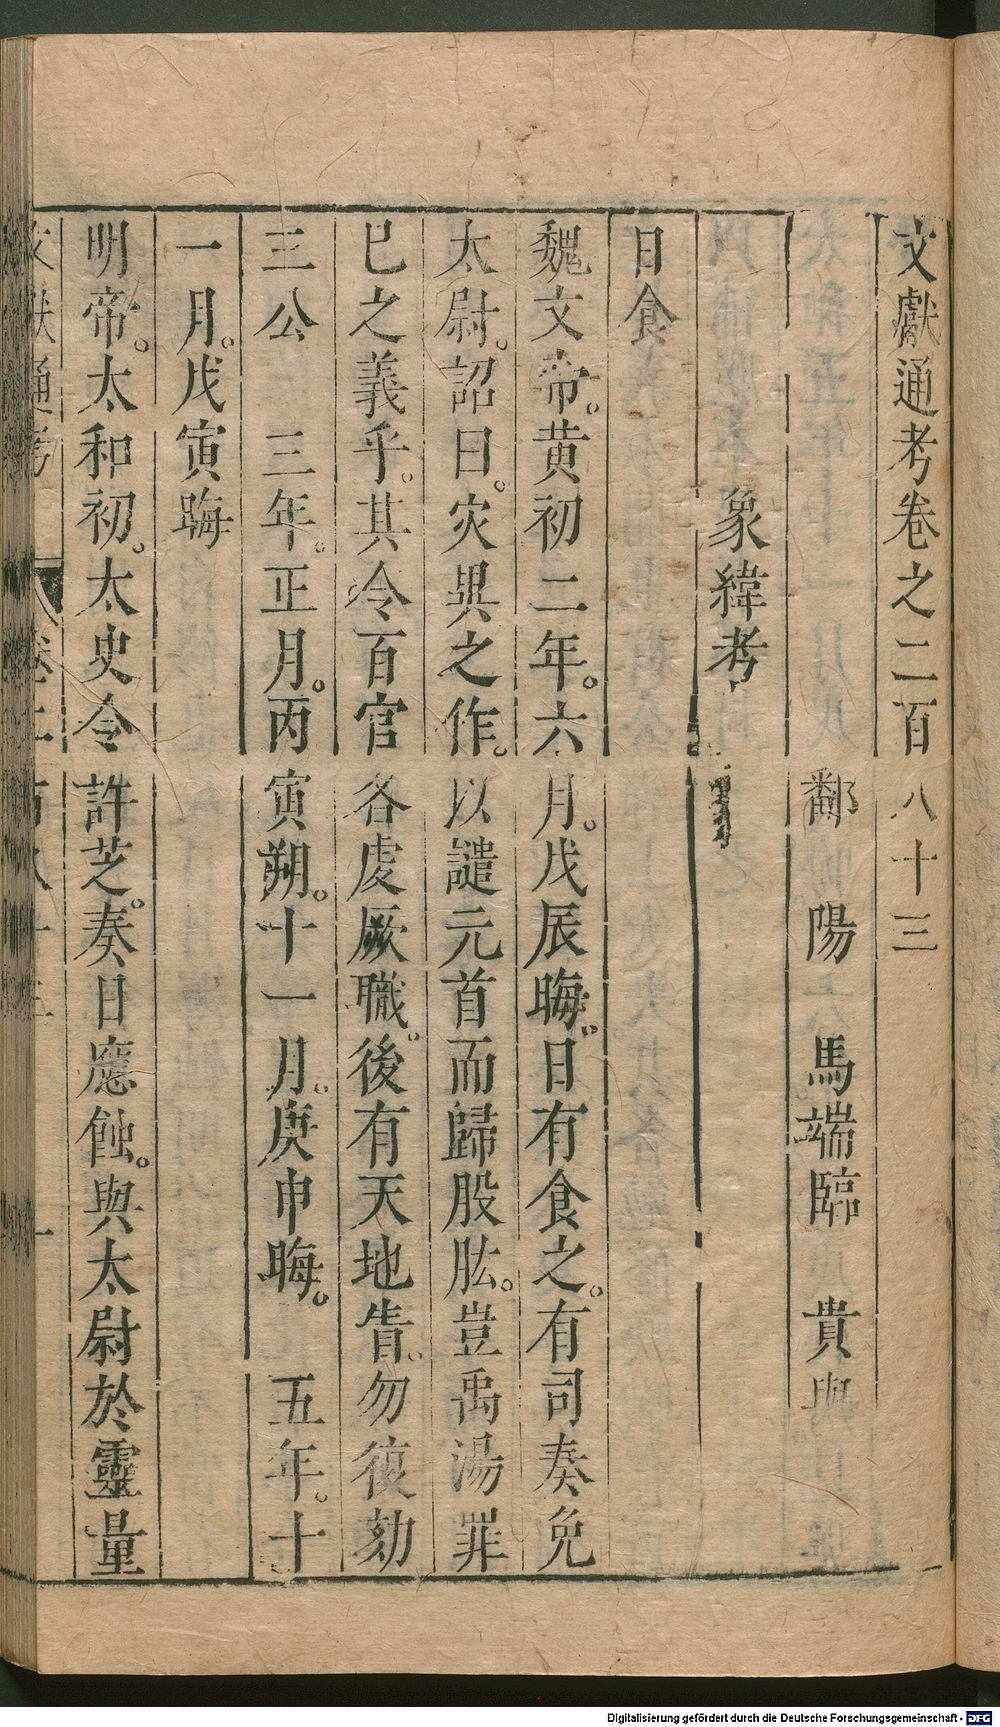 文獻通考卷之二百八十三
鄱陽 馬端臨 貴與
象緯考
日食
魏文帝。黄初二年。六月。戊辰晦。日有食之。有司奏免
太尉。詔曰。灾異之作。以譴元首而歸股肱。豈禹湯罪
已之義乎。其令百官各䖍厥職。後有天地眚。勿復劾
三公 三年。正月。丙寅朔。十一月。庚申晦。 五年。十
一月。戊寅晦
明帝。太和初。太史令許芝。奏日應蝕。與太尉於靈量
文獻通考 卷二百八十三 一
Digitalisierung gefördert durch die Deutsche Forschungsgemeinschaft - DFG